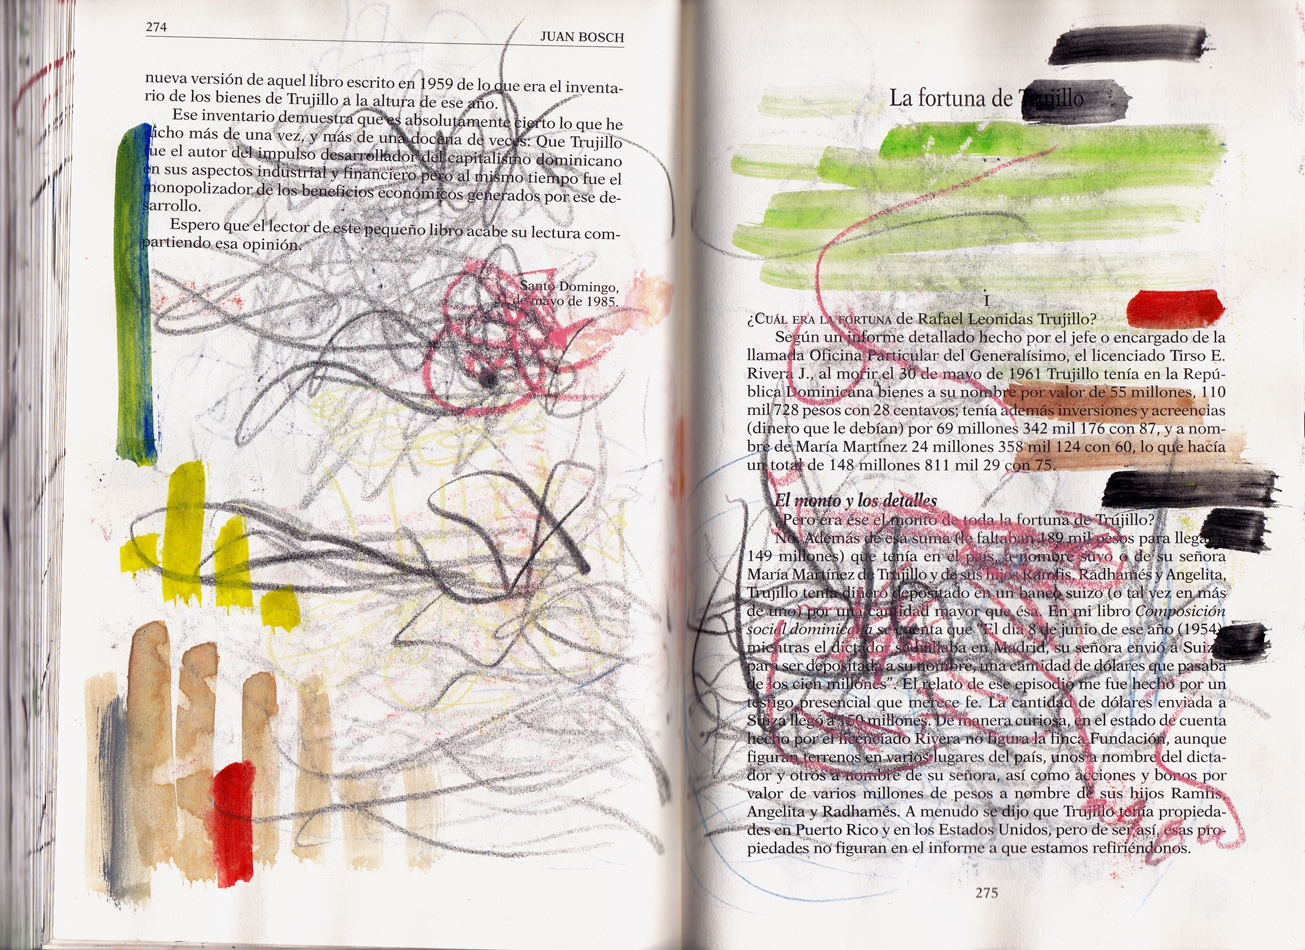 274
JUAN BOSCH
nueva versión de aquel libro escrito en 1959 de lo que era el inventa-
rio de los bienes de Trujillo a la altura de ese año.
Ese inventario demuestra que es absolutamente cierto lo que he
dicho más de una vez, y más de una docena de veces: Que Trujillo
fue el autor del impulso desarrollador del capitalismo dominicano
en sus aspectos industrial y financiero pero al mismo tiempo fue el
monopolizador de los beneficios económicos generados por ese de-
sarrollo.
Espero que el lector de este pequeño libro acabe su lectura com-
partiendo esa opinión.
Santo Domingo,
de mayo de 1985.
La fortuna de Trujillo
I
¿CUÁL ERA LA FORTUNA de Rafael Leonidas Trujillo?
Según un informe detallado hecho por el jefe o encargado de la
llamada Oficina Particular del Generalísimo, el licenciado Tirso E.
Rivera J., al morir el 30 de mayo de 1961 Trujillo tenía en la Repú-
blica Dominicana bienes a su nombre por valor de 55 millones, 110
mil 728 pesos con 28 centavos; tenía además inversiones y acreencias
(dinero que le debían) por 69 millones 342 mil 176 con 87, y a nom-
bre de María Martínez 24 millones 358 mil 124 con 60, lo que hacía
un total de 148 millones 811 mil 29 con 75.
El monto y los detalles
¿Pero era ése el monto de toda la fortuna de Trujillo?
No. Además de esa suma (le faltaban 189 mil pesos para llegar a
149 millones) que tenía en el país, a nombre suyo o de su señora
María Martínez de Trujillo y de sus hijos Ramfis, Radhamés y Angelita,
Trujillo tenía dinero depositado en un banco suizo (o tal vez en más
de uno) por una cantidad mayor que ésa. En mi libro Composición
social dominicana se cuenta que "El día 8 de junio de ese año (1954),
mientras el dictador se hallaba en Madrid, su señora envió a Suiza,
para ser depositada a su nombre, una cantidad de dólares que pasaba
de los cien millones". El relato de ese episodio me fue hecho por un
testigo presencial que merece fe. La cantidad de dólares enviada a
Suiza llegó a 150 millones. De manera curiosa, en el estado de cuenta
hecho por el licenciado Rivera no figura la finca Fundación, aunque
figuran terrenos en varios lugares del país, unos a nombre del dicta-
dor y otros a nombre de su señora, así como acciones y bonos por
valor de varios millones de pesos a nombre de sus hijos Ramfis,
Angelita y Radhamés. A menudo se dijo que Trujillo tenía propieda-
des en Puerto Rico y en los Estados Unidos, pero de ser así, esas pro-
piedades no figuran en el informe a que estamos refiriéndonos.
275